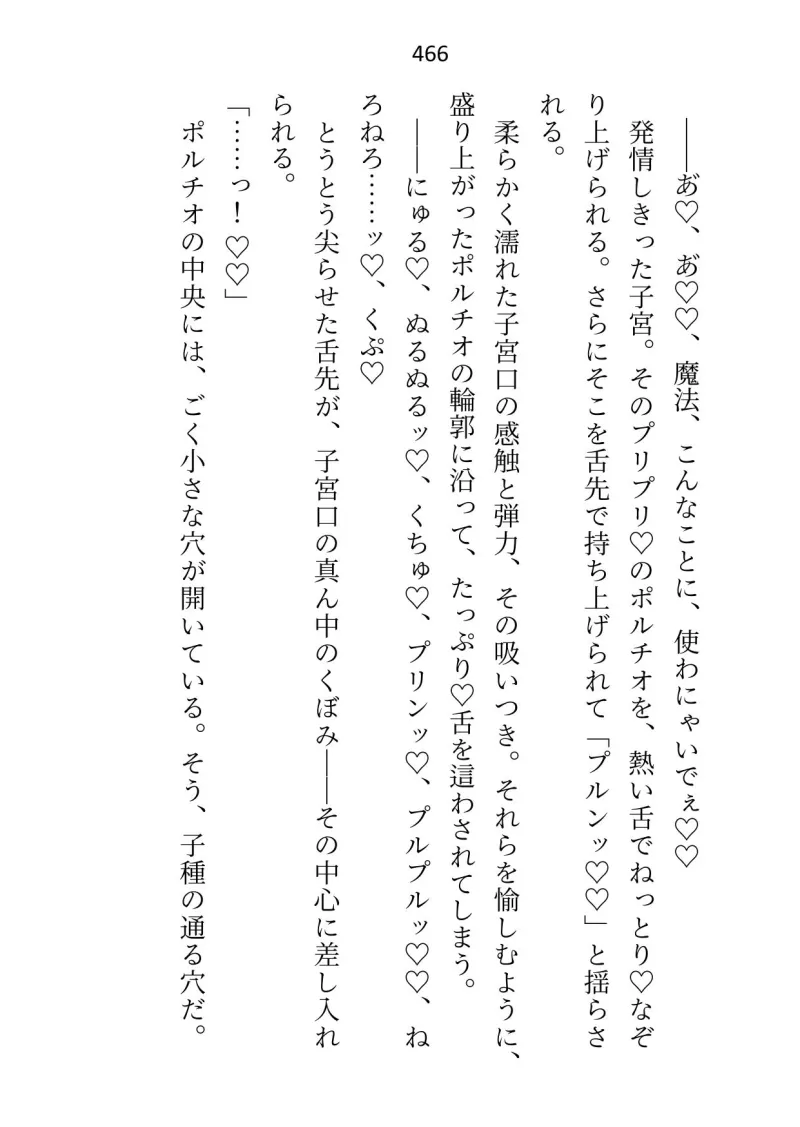 466
――あ゛♡、あ゛♡♡、魔法、こんなことに、使わにゃいでぇ♡♡
発情しきった子宮。そのプリプリ♡のポルチオを、熱い舌でねっとり♡なぞ
り上げられる。さらにそこを舌先で持ち上げられて「プルンッ♡♡」と揺らさ
れる。
柔らかく濡れた子宮口の感触と弾力、その吸いつき。それらを愉しむように、
盛り上がったポルチオの輪郭に沿って、たっぷり♡舌を這わされてしまう。
――にゅる♡、ぬるぬるッ♡、くちゅ♡、プリンッ♡、プルプルッ♡♡、ね
ろねろ……ッ♡、くぷ♡
とうとう尖らせた舌先が、子宮口の真ん中のくぼみ――その中心に差し入れ
られる。
「……っ！♡♡」
ポルチオの中央には、ごく小さな穴が開いている。そう、子種の通る穴だ。